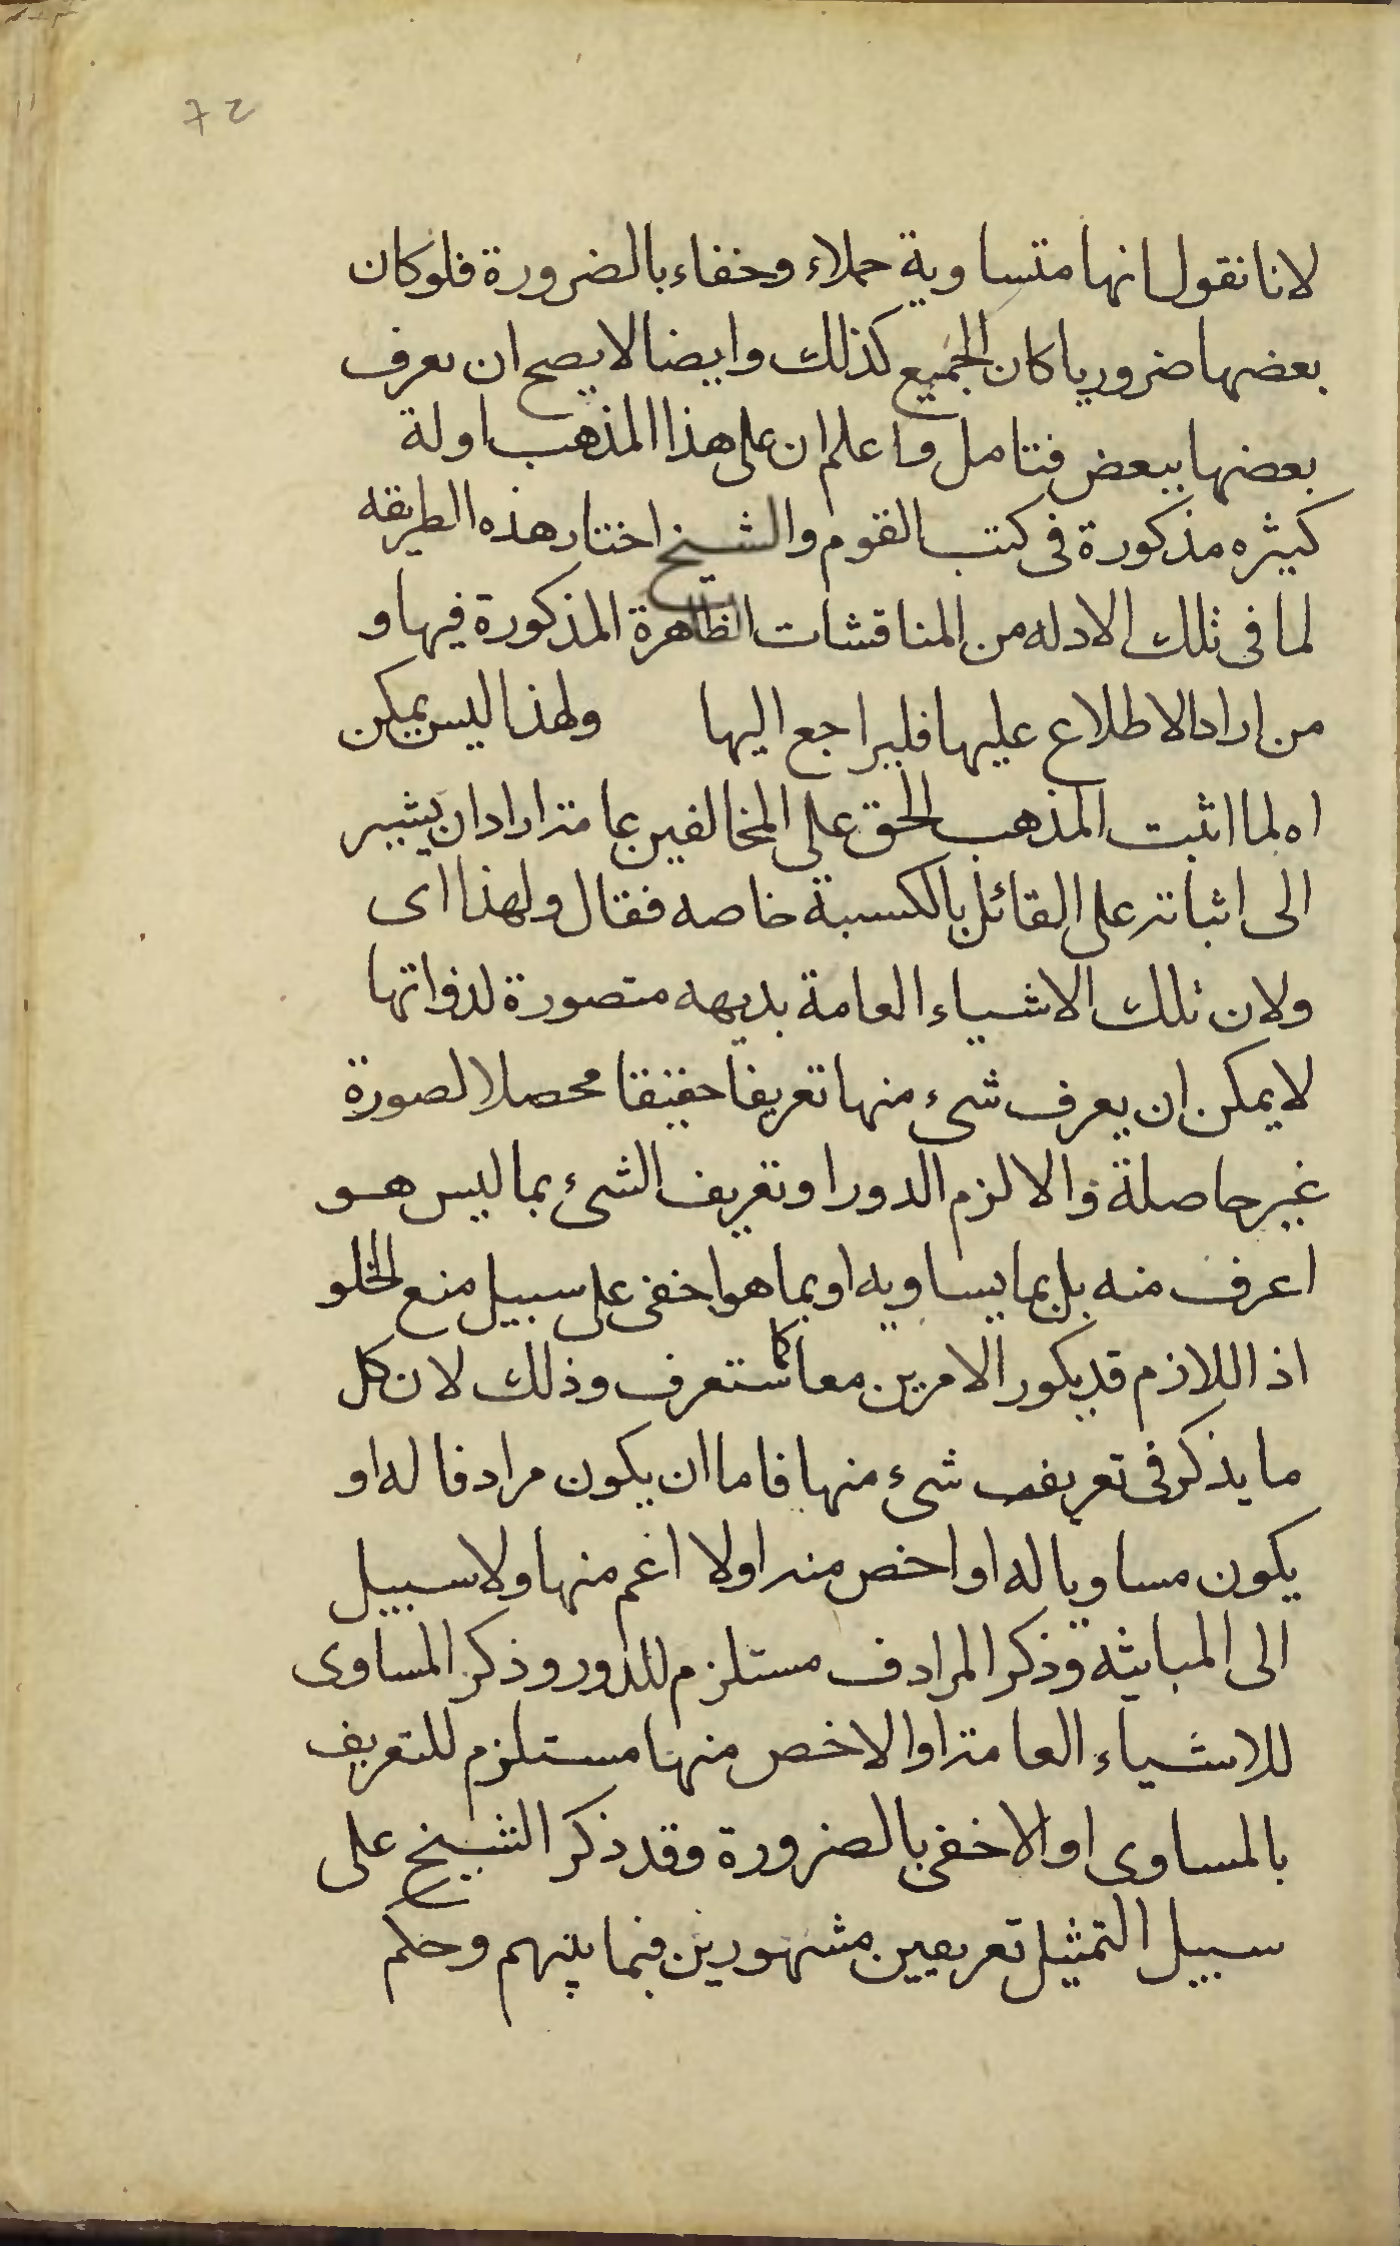 72
لانا نقول انها متساوية جملاء وخفاء بالضرورة فلو كان
بعضها ضروريا كان الجميع كذلك وايضا لا يصح ان يعرف
بعضها ببعض فتامل واعلم ان على هذا المذهب اولة
كثيره مذكورة فى كتب القوم والشيخ اختار هذه الطريقه
لما فى تلك الادله من المناقشات الظاهرة المذكورة فيها و
من اراد الاطلاع عليها فليراجع اليها ولهذا ليس يمكن
اه لما اثبت المذهب الحق على المخالفين عامة اراد ان يشير
الى اثباته على القائل بالكسبة خاصه فقال ولهذا اى
ولان تلك الاشياء العامة بديهه متصورة لذواتها
لا يمكن ان يعرف شىء منها تعريفا حقيقا محصلا لصورة
غير حاصلة والا لزم الدور او تعريف الشىء بما ليس هو
اعرف منه بل بما يساويه او بما هو اخفى على سبيل منع الخلو
اذ اللازم قد يكور الامرين معا كما ستعرف وذلك لان كل
ما يذكر فى تعريف شىء منها فاما ان يكون مرادفا له او
يكون مساويا له او اخص منه اولا اعم منها ولا سبيل
الى المباينه وذكر المرادف مستلزم للدور وذكر المساوى
للاشياء العامة او الاخص منها مستلزم للتعريف
بالمساوى او الاخفى بالضرورة وقد ذكر الشيخ على
سبيل التمثيل تعريفين مشهورين فيما بينهم وحكم